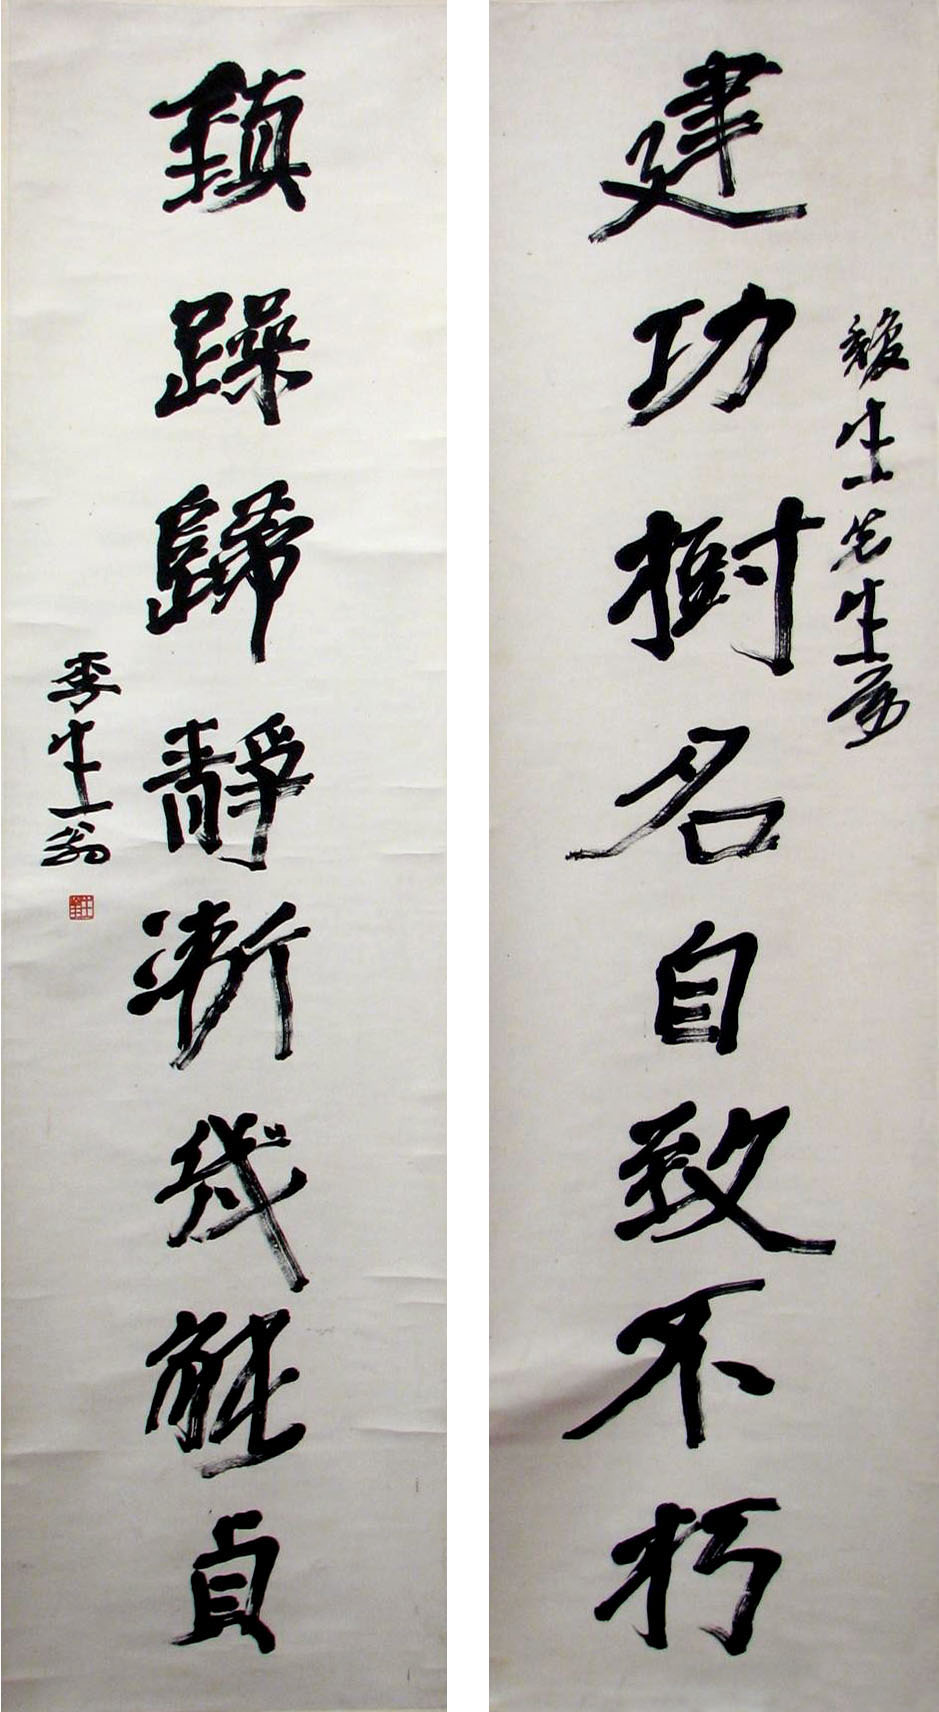 建功樹名自致不朽
生先生屬
鎮躁歸靜漸幾能貞
季生翁